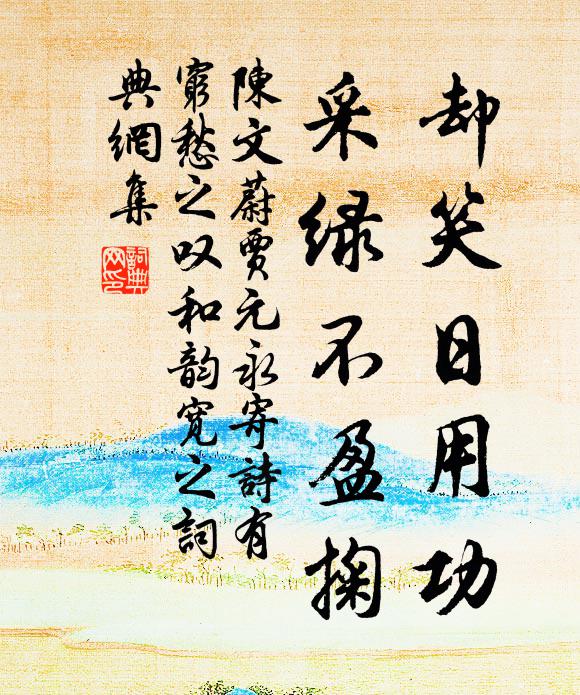 却笑日用功
采绿不盈掬
陳文蔚賈元永寄詩有
窮愁之叹和韵寬之詞
典網集
詞典網印